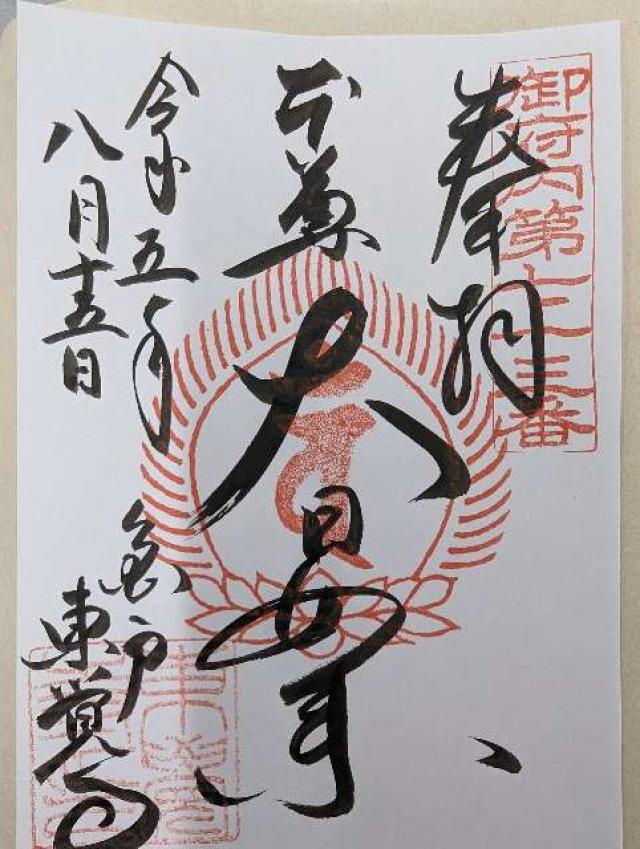 御府内第七十三番
奉拝
本尊
大日如来
令和五年
八月十五日
亀戸
東覚寺